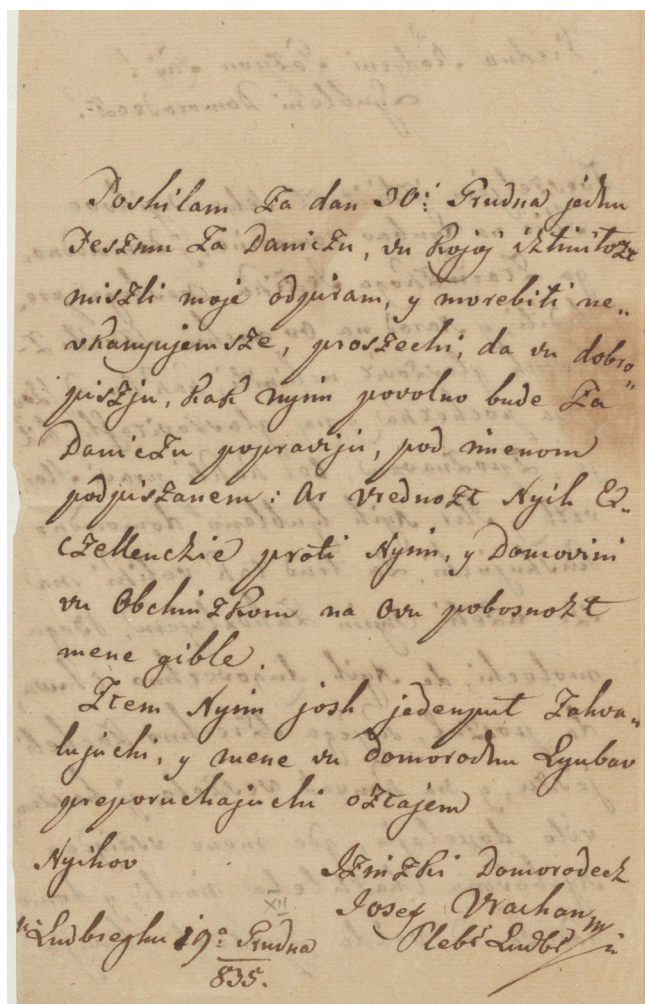 Poshilam za dan 30i Grudna jednu
Peszmu za Daniczu, vu kojoj isztinitoszt
miszli moje odpiram, y morebiti ne„
vkanyujemsze, proszechi, da vu dobro„
piszju, kak nyim povolno bude za
Daniczu popraviju, pod imenom
podpiszanem: Ar vrednozt Nyih Ex„
czellenckie proti Nyim, y Domovini
vu Obchinzkom na ovu pobosnozt
mene gible.
Ztem Nyim josh jedenput zahva„
lujuchi, y mene vu domorodnu Lyubav
preporuchajuchi oztajem
Nyihov
Izkizki Domorodecz
Josef Vrachan
Pleb: Ludb:
vu Ludbreghu 19a Grudna
835.
XII